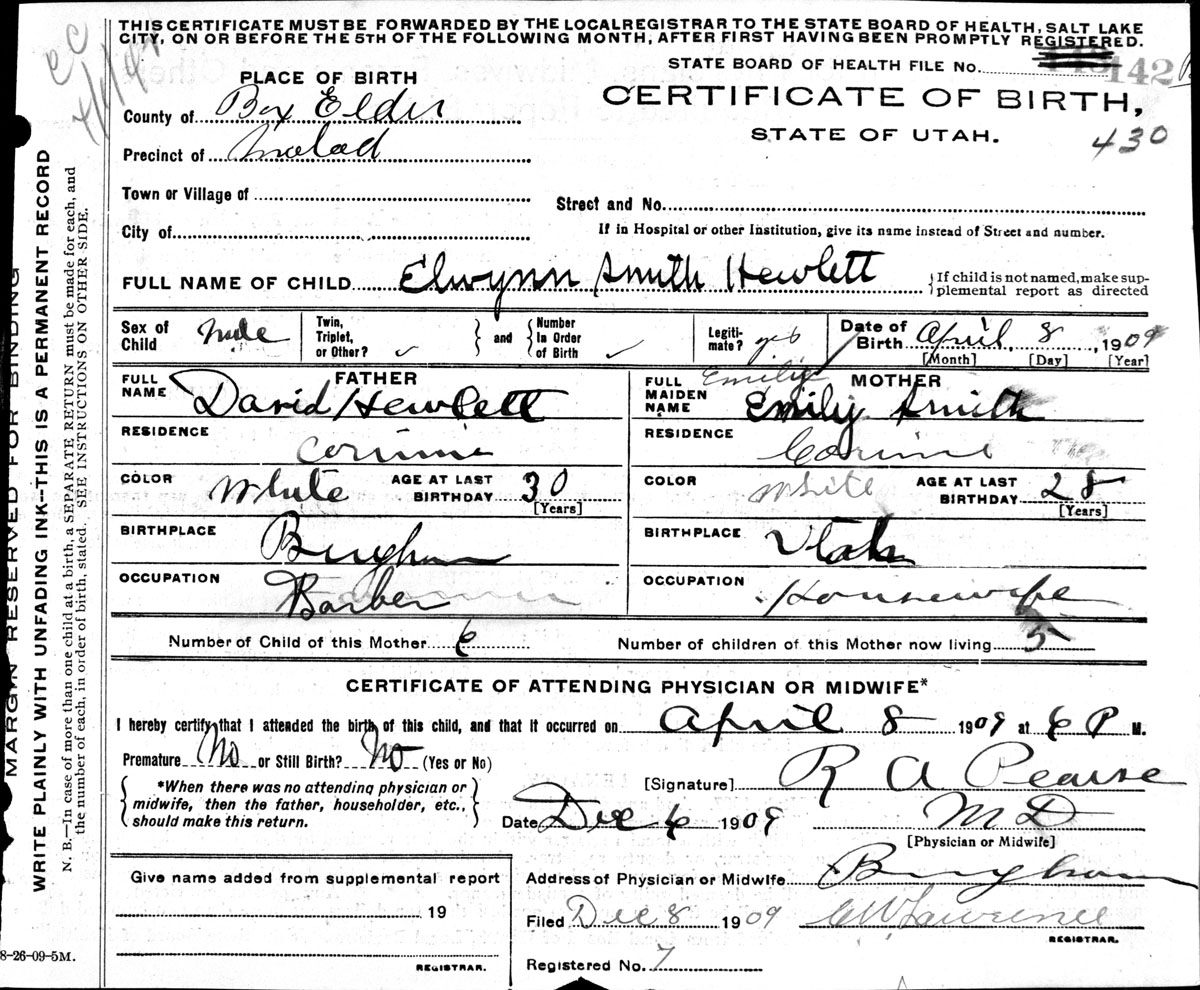 THIS CERTIFICATE MUST BE FORWARDED BY THE LOCAL REGISTRAR TO THE STATE BOARD OF HEALTH, SALT LAKE
CITY, ON OR BEFORE THE 5TH OF THE FOLLOWING MONTH, AFTER FIRST HAVING BEEN PROMPTLY REGISTERED.
STATE BOARD OF HEALTH FILE No. 142
PLACE OF BIRTH
CERTIFICATE OF BIRTH,
County of Box Elder
STATE OF UTAH.
430
Precinct of Malad
Town or Village of
Street and No.
City of
If in Hospital or other Institution, give its name instead of Street and number.
FULL NAME OF CHILD Elwynn Smith Hewlett {If child is not named, make sup-
plemental report as directed
Sex of Child Male
Twin, Triplet, or Other? ✓
and
Number In Order of Birth ✓
Legiti-mate? yes
Date of Birth April 8, 1909
[Month] [Day] [Year]
FATHER
FULL NAME David Hewlett
RESIDENCE Corinne
COLOR White AGE AT LAST BIRTHDAY 30
[Years]
BIRTHPLACE Bingham
OCCUPATION Barber
MOTHER
Emily
FULL MAIDEN NAME Emily Smith
RESIDENCE Corinne
COLOR White AGE AT LAST BIRTHDAY 28
[Years]
BIRTHPLACE Utah
OCCUPATION Housewife
Number of Child of this Mother 6 Number of children of this Mother now living 5
CERTIFICATE OF ATTENDING PHYSICIAN OR MIDWIFE*
I hereby certify that I attended the birth of this child, and that it occurred on April 8 1909 at 6 P M.
Premature No or Still Birth? No (Yes or No)
*When there was no attending physician or
midwife, then the father, householder, etc.,
should make this return.
[Signature] R A Pearse
Date Dec 6 1909 M D
[Physician or Midwife]
Give name added from supplemental report
19
REGISTRAR.
Address of Physician or Midwife Brigham
Filed Dec 8 1909 Lawrence
REGISTRAR.
Registered No. 7
MARGIN RESERVED FOR BINDING
WRITE PLAINLY WITH UNFADING INK-THIS IS A PERMANENT RECORD
N. B.—In case of more than one child at a birth, a SEPARATE RETURN must be made for each, and
the number of each, in order of birth, stated. SEE INSTRUCTIONS ON OTHER SIDE.
8-26-09-5M.